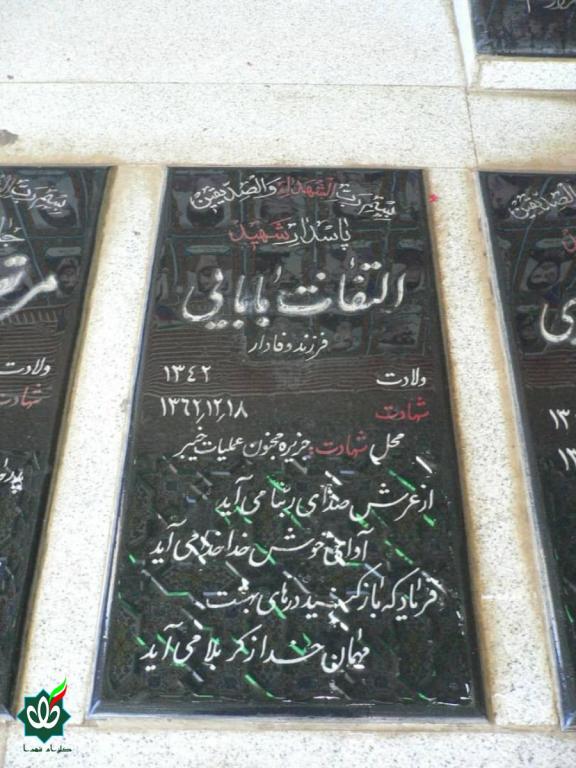 بسم رب الشهداء والصدیقین
پاسدار شهید
التفات بابایی
فرزند وفادار
ولادت ۱۳۴۲
شهادت ۱۳۶۲/۱۲/۱۸
محل شهادت: جزیره مجنون عملیات خیبر
از عرش صدای ربنا می آید
آوای خوش خدا خدا می آید
فریاد که باز کنید درهای بهشت
مهمان خدا از کربلا می آید
ولادت
شهادت